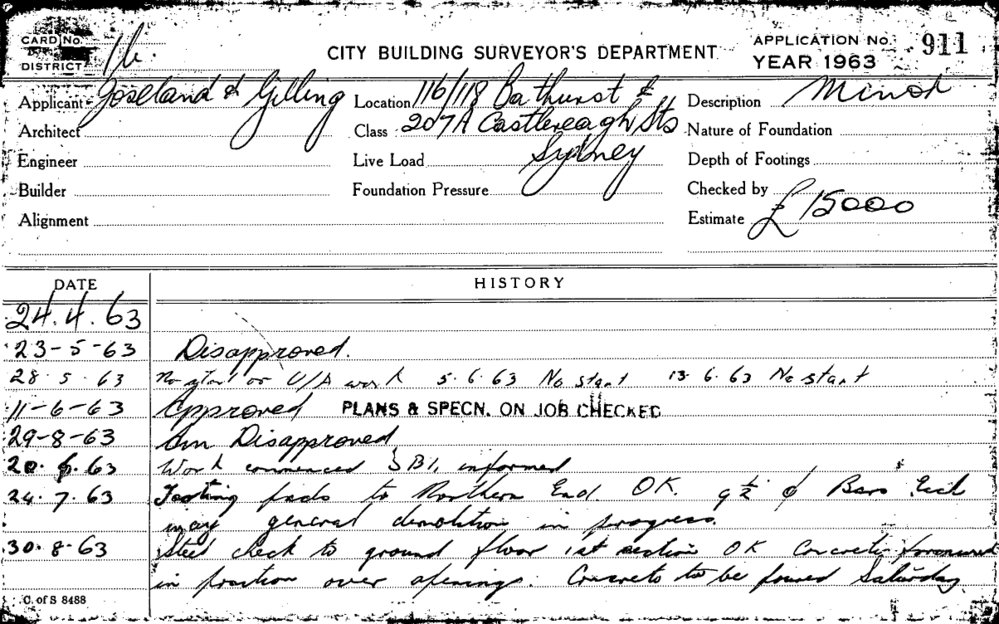 CARD No.
DISTRICT 16
CITY BUILDING SURVEYOR'S DEPARTMENT
APPLICATION No. 911
YEAR 1963
Applicant Joseland & Gilling
Location 116/118 Bathurst &
Description Minor
Architect
Class 207A Castlereagh Sts
Nature of Foundation
Engineer
Live Load Sydney
Depth of Footings
Builder
Foundation Pressure
Checked by
Alignment
Estimate £15000
DATE HISTORY
24.4.63
23-5-63 Disapproved.
28.5.63 No start on U/A work 5.6.63 No start 13.6.63 No start
11-6-63 Approved PLANS & SPECN. ON JOB CHECKED
29-8-63 Am Disapproved
20.6.63 Work commenced SBI. informed
24.7.63 Footing pads to Northern End OK. 9 ½ ϕ Bars Each
way general demolition in progress.
30.8.63 Steel check to ground floor 1st section OK Concrete
in position over openings. Concrete to be poured Saturday
C. of S 8488